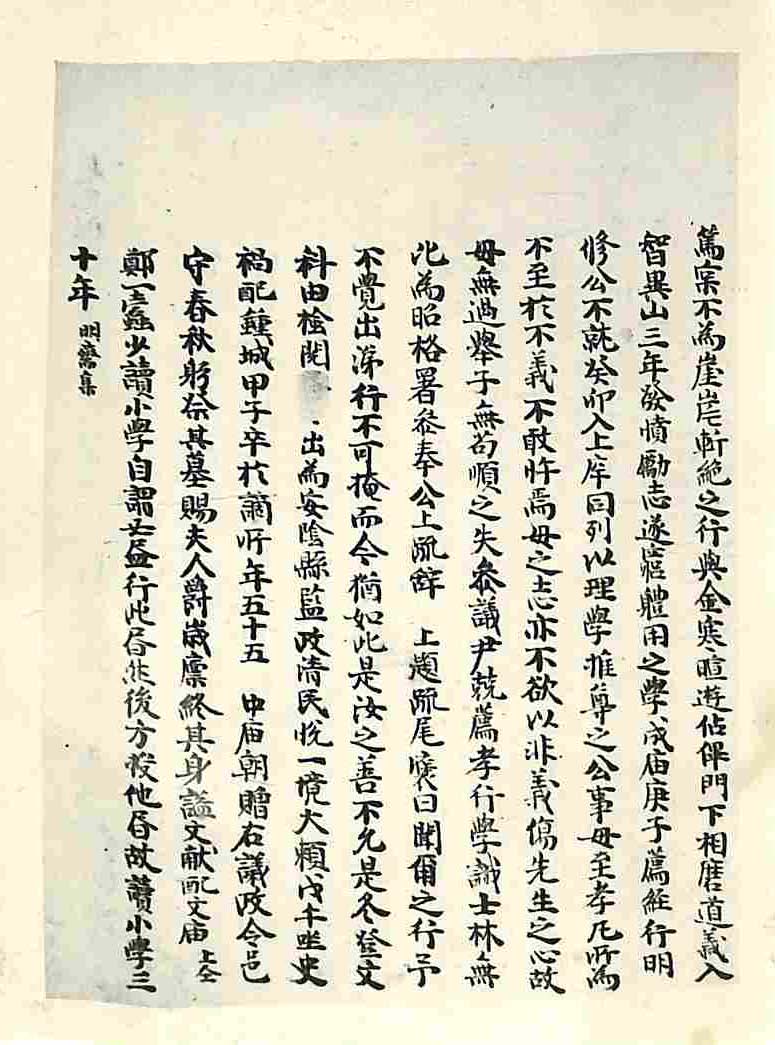 篤宲不為崖岸斬絶之行與金寒暄遊佔俾門下相磨道義入
智異山三年發憤勵志遂窮體用之學成庙庚子薦經行明
修公不就癸卯入上庠同列以理學推尊之公事母至孝凡所為
不至於不義不敢忤焉母之志亦不欲以非義傷先生之心故
母無過舉子無苟順之失叅議尹兢薦孝行學識士林無
比為昭格署叅奉公上疏辞 上題疏尾褒曰聞爾之行予
不覺出涕行不可掩而今猶如此是汝之善不允是冬登文
科由檢閱 出為安陰縣監政清民悅一境大賴戊午坐史
禍配鍾城甲子卒於謫所年五十五 中庙朝贈右議政令邑
守春秋躬祭其墓賜夫人爵歲廩終其身諡文獻配文庙 上仝
鄭一蠹少讀小學自謂必盡行此書然後方授他書故讀小學三
十年 明齋集